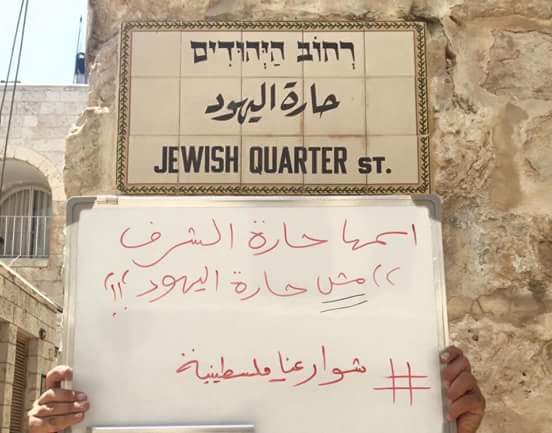 רְחוֹב הַיְּהוּדִים
حارة اليهود
JEWISH QUARTER ST.
اسمها حارة الشرف
"مش حارة اليهود"!!
# شوارعنا فلسطينية